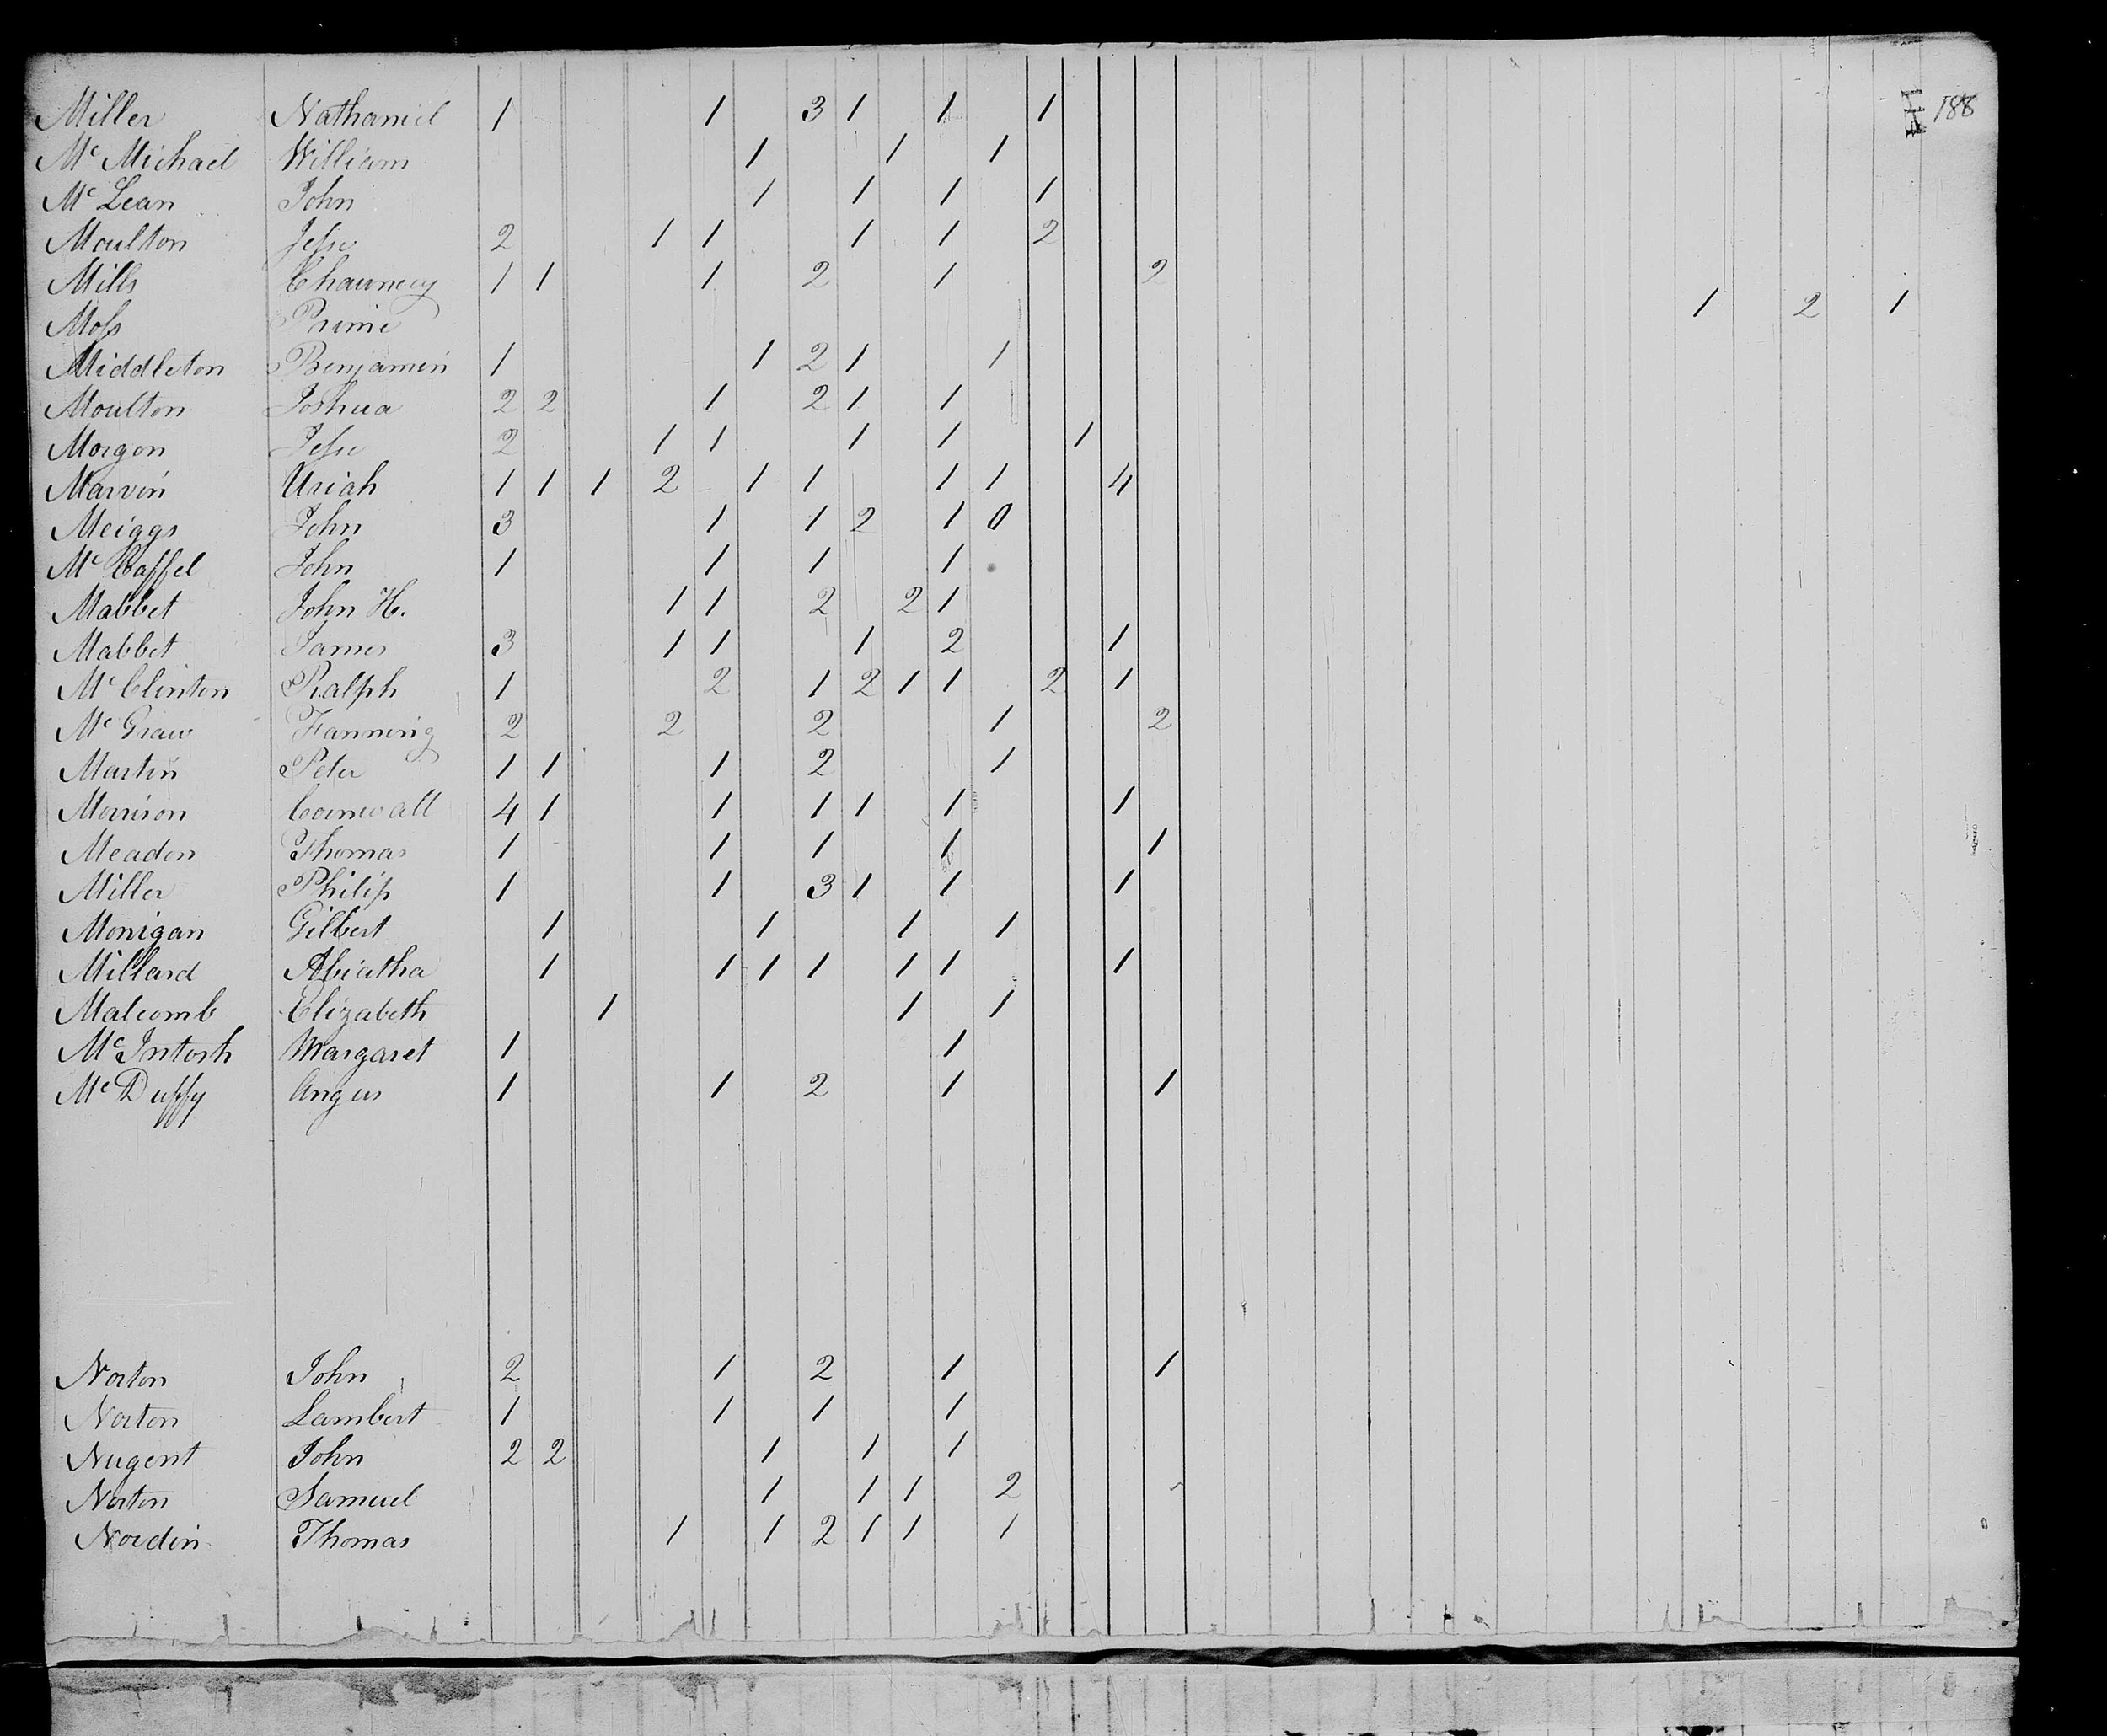 188
Miller Nathaniel 1 1 3 1 1 1
Mc Michael William 1 1 1
Mc Lean John 1 1 1 1
Moulton Jesse 2 1 1 1 1 2
Mills Chauncey 1 1 1 2 1 2
Moss Prime 1 2 1
Middleton Benjamin 1 1 2 1 1
Moulton Joshua 2 2 1 2 1 1
Morgon Jesse 2 1 1 1 1 1
Marvin Uriah 1 1 1 2 1 1 1 1 4
Meiggs John 3 1 1 2 1 0
Mc Caffel John 1 1 1 1
Mabbet John H. 1 1 2 2 1
Mabbet James 3 1 1 1 2 1
Mc Clinton Ralph 1 2 1 2 1 1 2 1
Mc Graw Fanning 2 2 2 1 2
Martin Peter 1 1 1 2 1
Morrison Cornwall 4 1 1 1 1 1 1
Meadon Thomas 1 1 1 1 1
Miller Philip 1 1 3 1 1 1
Monigan Gilbert 1 1 1 1
Millard Abiatha 1 1 1 1 1 1 1
Malcomb Elizabeth 1 1 1
Mc Intosh Margaret 1 1
Mc Duffy Angus 1 1 2 1 1
Norton John 2 1 2 1 1
Norton Lambert 1 1 1 1
Nugent John 2 2 1 1 1
Norton Samuel 1 1 1 2
Nordin Thomas 1 1 2 1 1 1